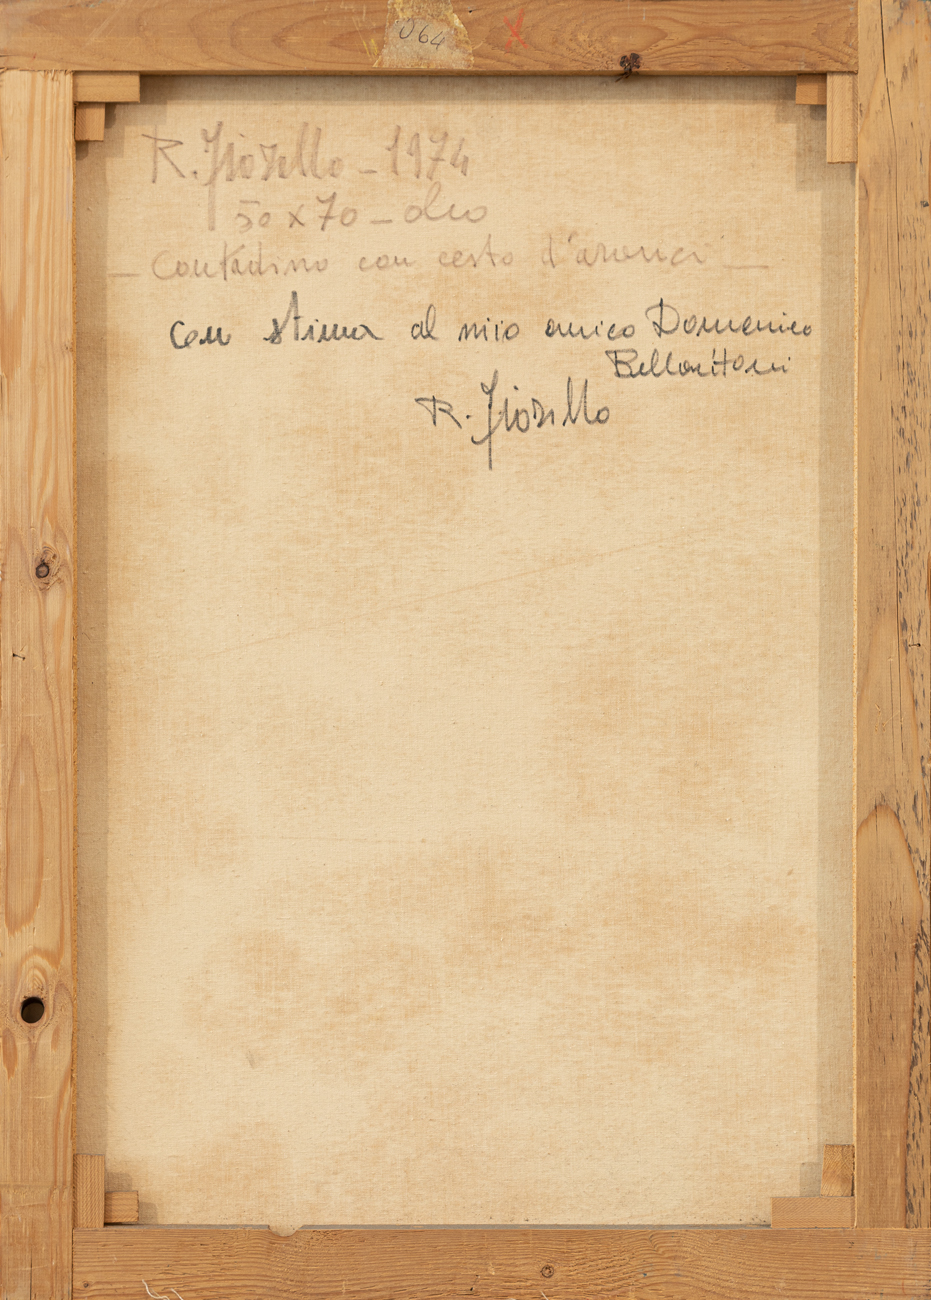 064
R. Fiorillo - 1974
50 x 70 - olio
- Contadino con cesto d'aranci -
Con stima al mio amico Domenico
R. Fiorillo